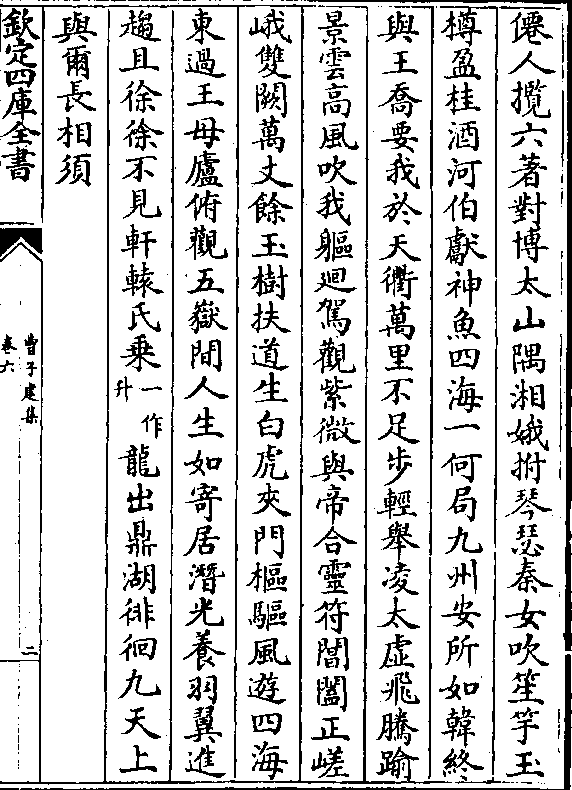 僊人攬六著對博太山隅湘娥拊琴瑟秦女吹笙竽玉
樽盈桂酒河伯獻神魚四海一何局九州安所如韓終
與王喬要我於天衢萬里不足步輕舉凌太虛飛騰踰
景雲高風吹我軀廻駕觀紫微與帝合靈符閶闔正嵯
峨雙闕萬丈餘玉樹扶道生白虎夾門樞驅風遊四海
東過王母廬俯觀五嶽間人生如寄居潛光養羽翼進
趨且徐徐不見軒轅氏乘一作升龍出鼎湖徘徊九天上
與爾長相須
欽定四庫全書
曹子建集
卷六
二